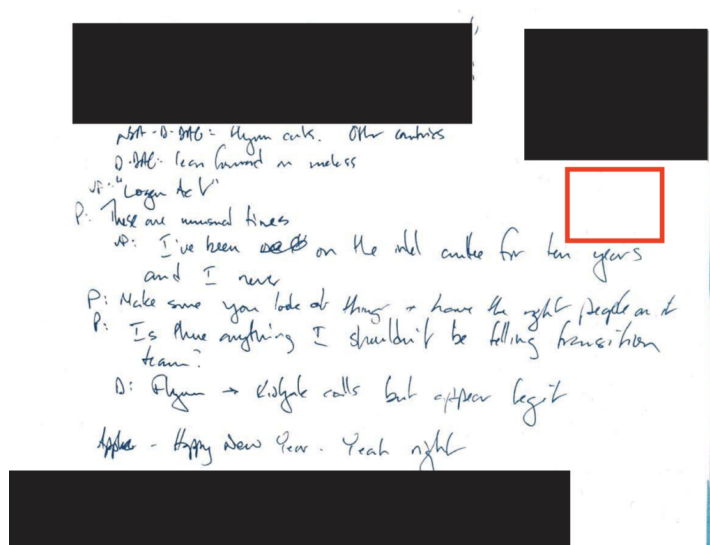 NSA-D-DAG: Flynn cuts. Other countries
D-DAG: lean forward on
VP: "Logan Act"
P: These are unusual times
VP: I've been on the intel cmtee for ten years
and I never
P: Make sure you look at things + have the right people on it
P: Is there anything I shouldn't be telling transition
team?
D: Flynn → Kislyak calls but appear legit
- Happy New Year. Yeah right